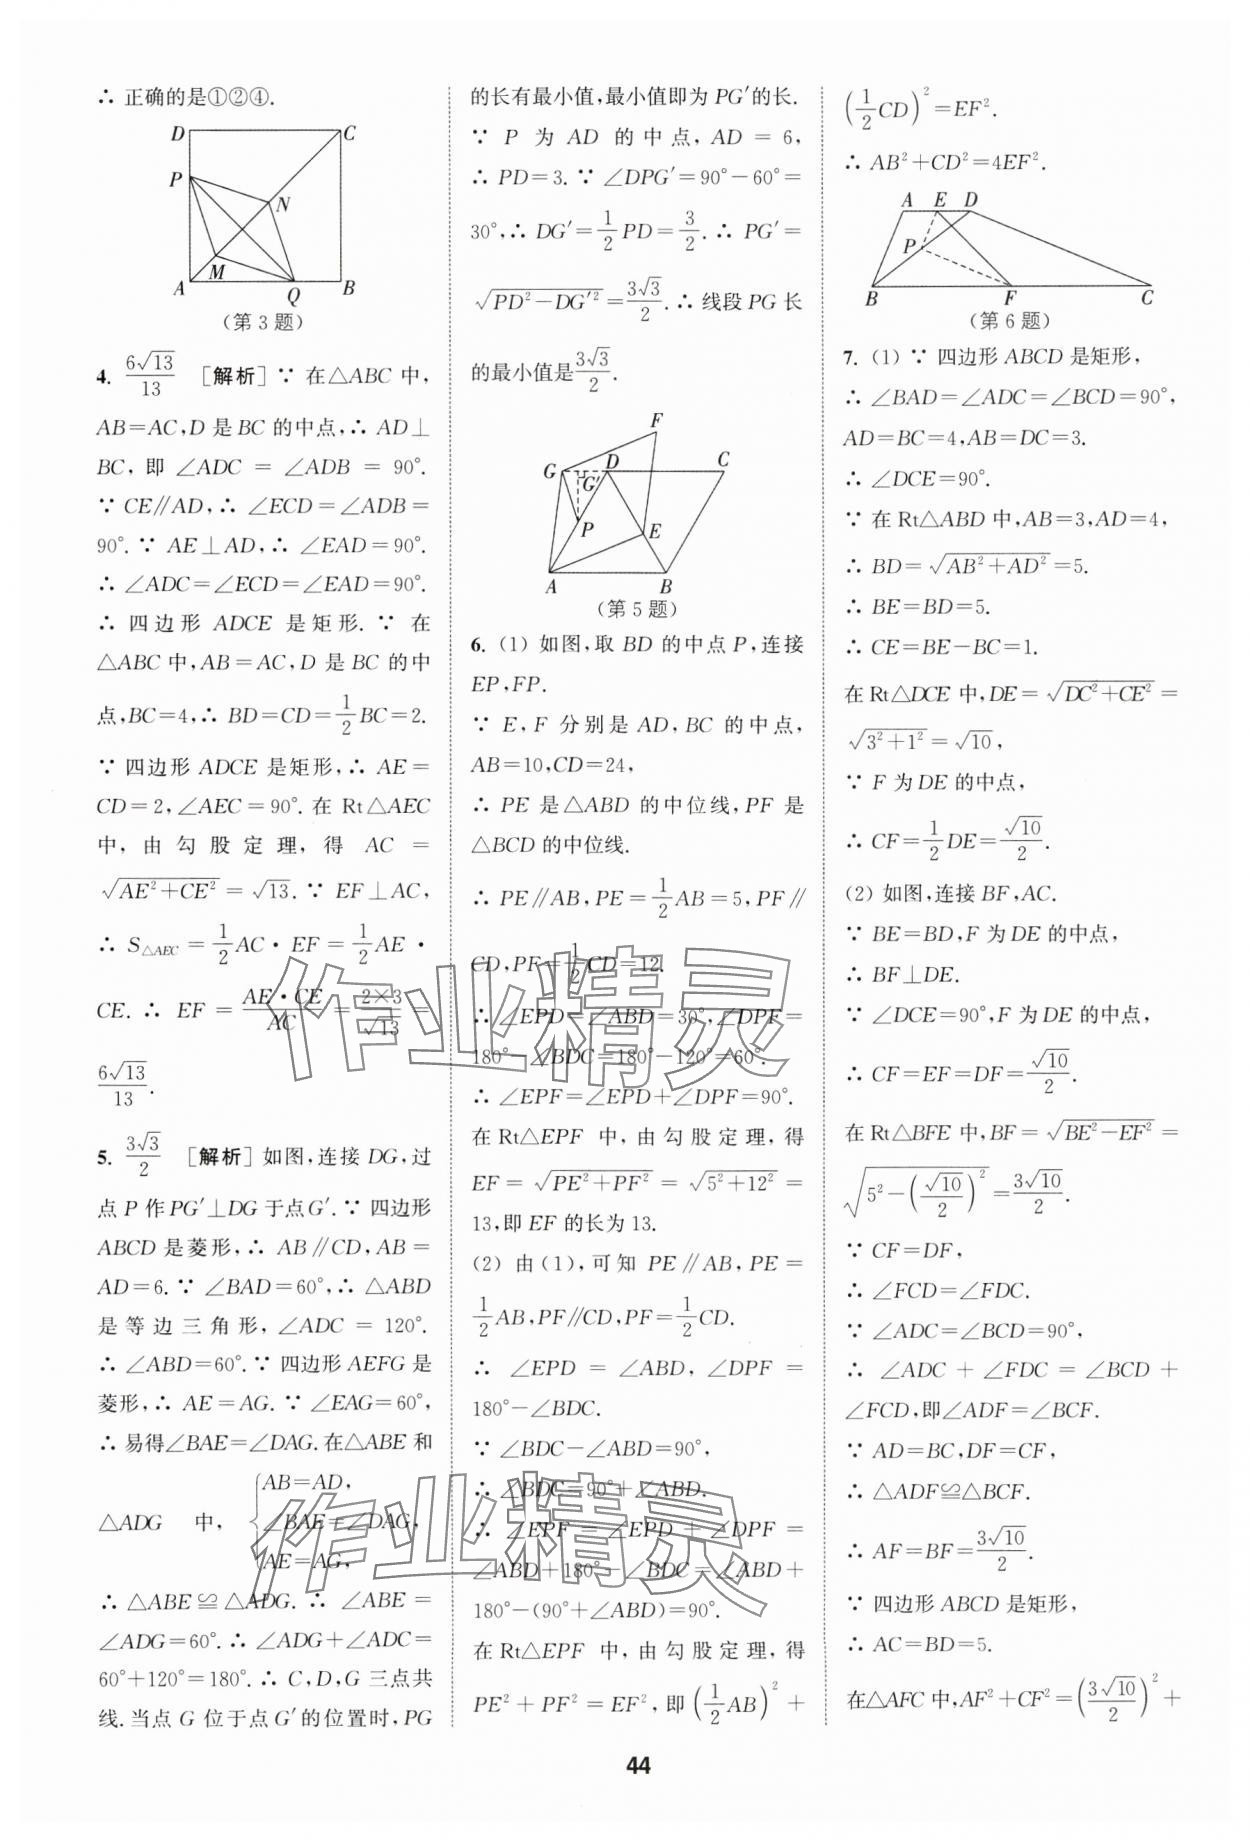 ∴ 正确的是①②④.
D C P N M A Q B
(第 3 题)
4. 6√13/13 [解析] ∵ 在△ABC 中,
AB=AC,D 是 BC 的中点,∴ AD⊥
BC, 即 ∠ADC = ∠ADB = 90°.
∵ CE∥AD,∴ ∠ECD=∠ADB=
90°. ∵ AE⊥AD,∴ ∠EAD=90°.
∴ ∠ADC=∠ECD=∠EAD=90°.
∴ 四边形 ADCE 是矩形. ∵ 在
△ABC 中,AB=AC,D 是 BC 的中
点,BC=4,∴ BD=CD=1/2BC=2.
∵ 四边形 ADCE 是矩形,∴ AE=
CD=2,∠AEC=90°. 在 Rt△AEC
中, 由 勾 股 定 理, 得 AC =
√(AE²+CE²) = √13. ∵ EF⊥AC,
∴ S△AEC = 1/2 AC · EF = 1/2 AE ·
CE. ∴ EF = AE·CE/AC = 2×3/√13 =
6√13/13.
5. 3√3/2 [解析] 如图,连接 DG,过
点 P 作 PG′⊥DG 于点G′. ∵ 四边形
ABCD 是菱形,∴ AB∥CD,AB=
AD=6. ∵ ∠BAD=60°,∴ △ABD
是等边三角形, ∠ADC = 120°.
∴ ∠ABD=60°. ∵ 四边形 AEFG 是
菱形,∴ AE=AG. ∵ ∠EAG=60°,
∴ 易得∠BAE=∠DAG. 在△ABE 和
△ADG 中, { AB=AD,
∠BAE=∠DAG,
AE=AG,
∴ △ABE ≌ △ADG. ∴ ∠ABE =
∠ADG=60°. ∴ ∠ADG+∠ADC=
60°+120°=180°. ∴ C,D,G 三点共
线. 当点 G 位于点 G′的位置时,PG
的长有最小值,最小值即为 PG′的长.
∵ P 为 AD 的中点, AD = 6,
∴ PD=3. ∵ ∠DPG′=90°-60°=
30°,∴ DG′=1/2PD=3/2. ∴ PG′=
√(PD²-DG′²)=3√3/2. ∴ 线段 PG 长
的最小值是3√3/2.
F G D C G′ P E A B
(第 5 题)
6. (1) 如图,取 BD 的中点 P,连接
EP,FP.
∵ E,F 分别是 AD,BC 的中点,
AB=10,CD=24,
∴ PE 是△ABD 的中位线,PF 是
△BCD 的中位线.
∴ PE∥AB,PE=1/2AB=5,PF∥
CD,PF=1/2CD=12.
∴ ∠EPD=∠ABD=30°,∠DPF=
180°-∠BDC=180°-120°=60°.
∴ ∠EPF=∠EPD+∠DPF=90°.
在 Rt△EPF 中,由勾股定理,得
EF = √(PE²+PF²) = √(5²+12²) =
13,即 EF 的长为 13.
(2) 由(1),可知 PE∥AB,PE=
1/2AB,PF∥CD,PF=1/2CD.
∴ ∠EPD = ∠ABD, ∠DPF =
180°-∠BDC.
∵ ∠BDC-∠ABD=90°,
∴ ∠BDC=90°+∠ABD.
∴ ∠EPF = ∠EPD + ∠DPF =
∠ABD+180°-∠BDC=∠ABD+
180°-(90°+∠ABD)=90°.
在 Rt△EPF 中,由勾股定理,得
PE²+PF²=EF²,即(1/2AB)²+
(1/2CD)²=EF².
∴ AB²+CD²=4EF².
A E D P B F C
(第 6 题)
7. (1) ∵ 四边形 ABCD 是矩形,
∴ ∠BAD=∠ADC=∠BCD=90°,
AD=BC=4,AB=DC=3.
∴ ∠DCE=90°.
∵ 在 Rt△ABD 中,AB=3,AD=4,
∴ BD=√(AB²+AD²)=5.
∴ BE=BD=5.
∴ CE=BE-BC=1.
在 Rt△DCE 中,DE=√(DC²+CE²)=
√(3²+1²)=√10,
∵ F 为 DE 的中点,
∴ CF=1/2DE=√10/2.
(2) 如图,连接 BF,AC.
∵ BE=BD,F 为 DE 的中点,
∴ BF⊥DE.
∵ ∠DCE=90°,F 为 DE 的中点,
∴ CF=EF=DF=√10/2.
在 Rt△BFE 中,BF=√(BE²-EF²)=
√(5²-(√10/2)²)=3√10/2.
∵ CF=DF,
∴ ∠FCD=∠FDC.
∵ ∠ADC=∠BCD=90°,
∴ ∠ADC + ∠FDC = ∠BCD +
∠FCD,即∠ADF=∠BCF.
∵ AD=BC,DF=CF,
∴ △ADF≌△BCF.
∴ AF=BF=3√10/2.
∵ 四边形 ABCD 是矩形,
∴ AC=BD=5.
在△AFC 中,AF²+CF²=(3√10/2)²+
作业精灵
作业精灵
44